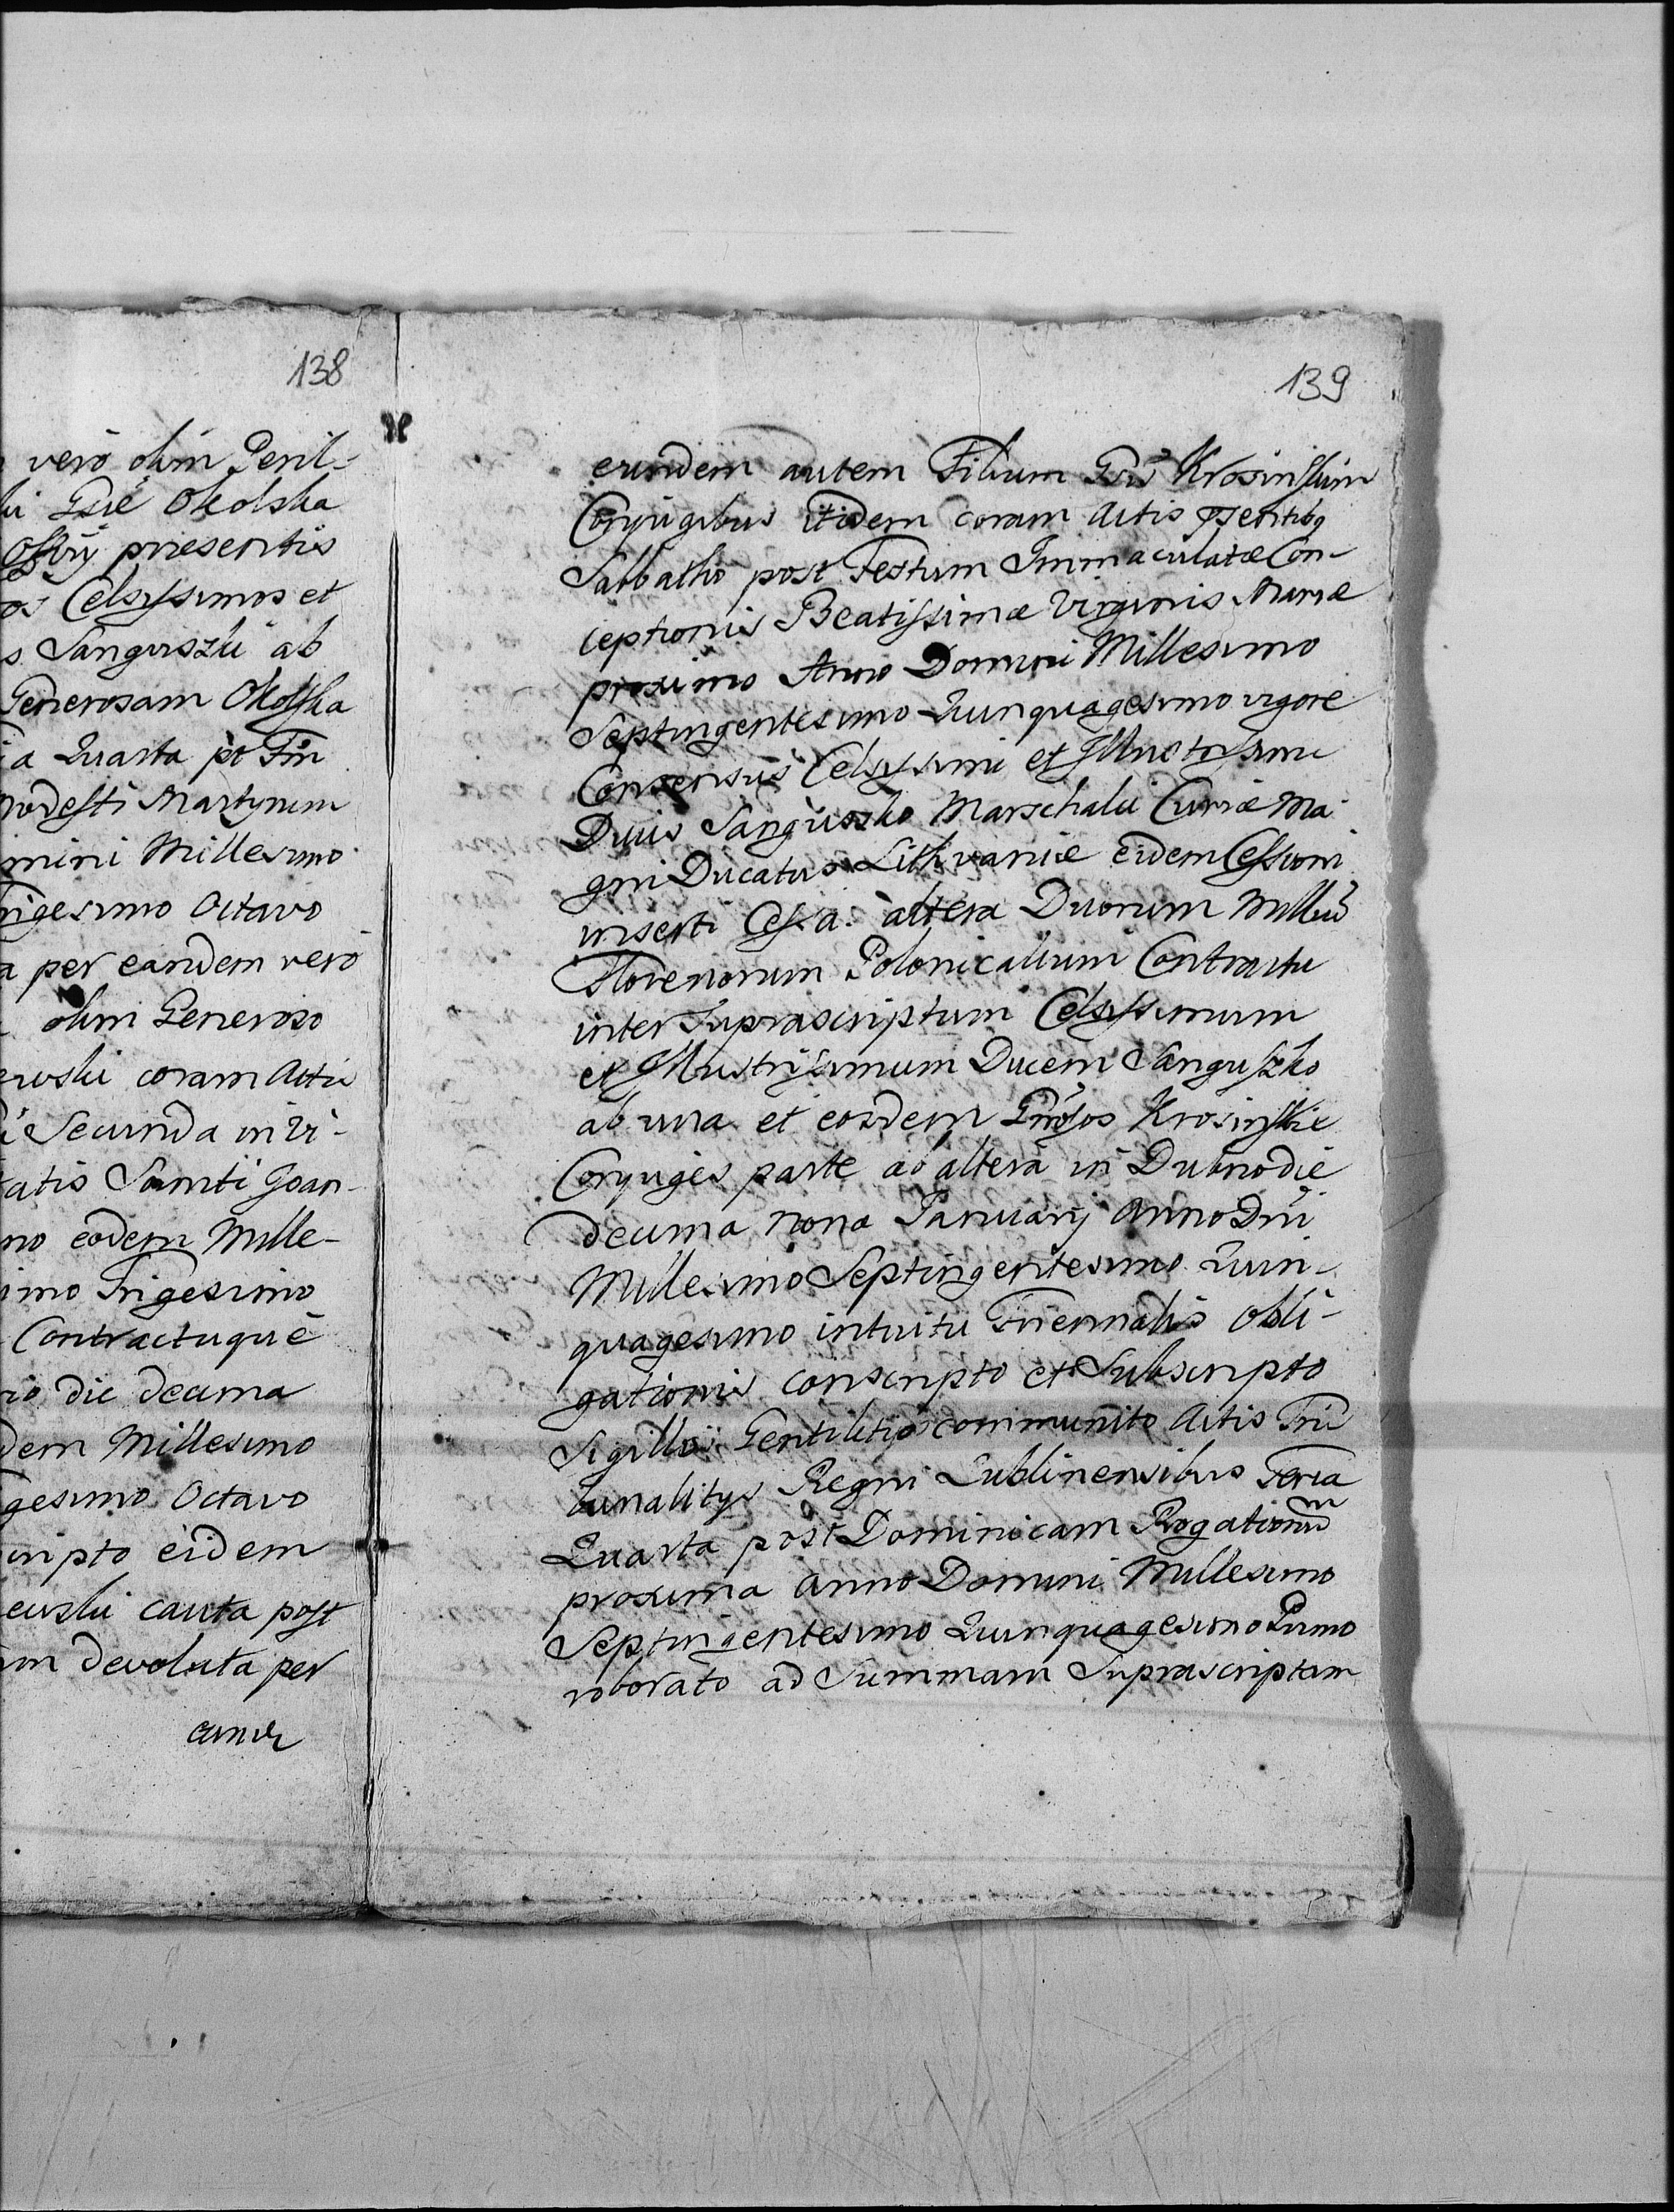 138
vero olim Peril-
Gsae Okolska
Offii praesentis
Celsissimos et
Sanguszki ab
Generosam Okolska
a Quarta pt Fm
Modesti Martyrum
mini Millesimo
gesimo Octavo
a per eandem vero
olim Generoso
ewski coram Actis
Secunda in Vi-
tatis Sancti Joan-
no eodem Mille-
imo Trigesimo
Contractuque
rio die decima
dem Millesimo
gesimo Octavo
cripto eidem
ewski cauta post
um devoluta per
139
eundem autem Filium Gsis Krosinskim
Conjugibus itidem coram Actis psentibq
Sabbatho post Festum Immaculatae Con-
ceptionis Beatissimae Virginis Mariae
proximo Anno Domini Millesimo
Septingentesimo Quinquagesimo vigore
Consensus Celsissimi et Illustrissimi
Ducis Sanguszko Marschalci Curiae Ma-
gni Ducatus Lithvaniae eidem Cessioni
inserti Cessa. altera Duorum Milliu
Florenorum Polonicalium Contractu
inter Suprascriptum Celsissimum
et Illustrissimum Ducem Sanguszko
ab una et eosdem Gnosos Krosinskie
Conjuges parte ab altera in Dubno die
decima nona Januarij Anno Dni
Millesimo Septingentesimo Quin-
quagesimo intuitu Triennalis Obli-
gationis conscripto et Subscripto
Sigillo Gentilitio communito Actis Tri
bunalitijs Regni Lublinensibus Feria
Quarta post Dominicam Rogationum
proxima Anno Domini Millesimo
Septingentesimo Quinquagesimo Primo
roborato ad Summam Suprascriptam